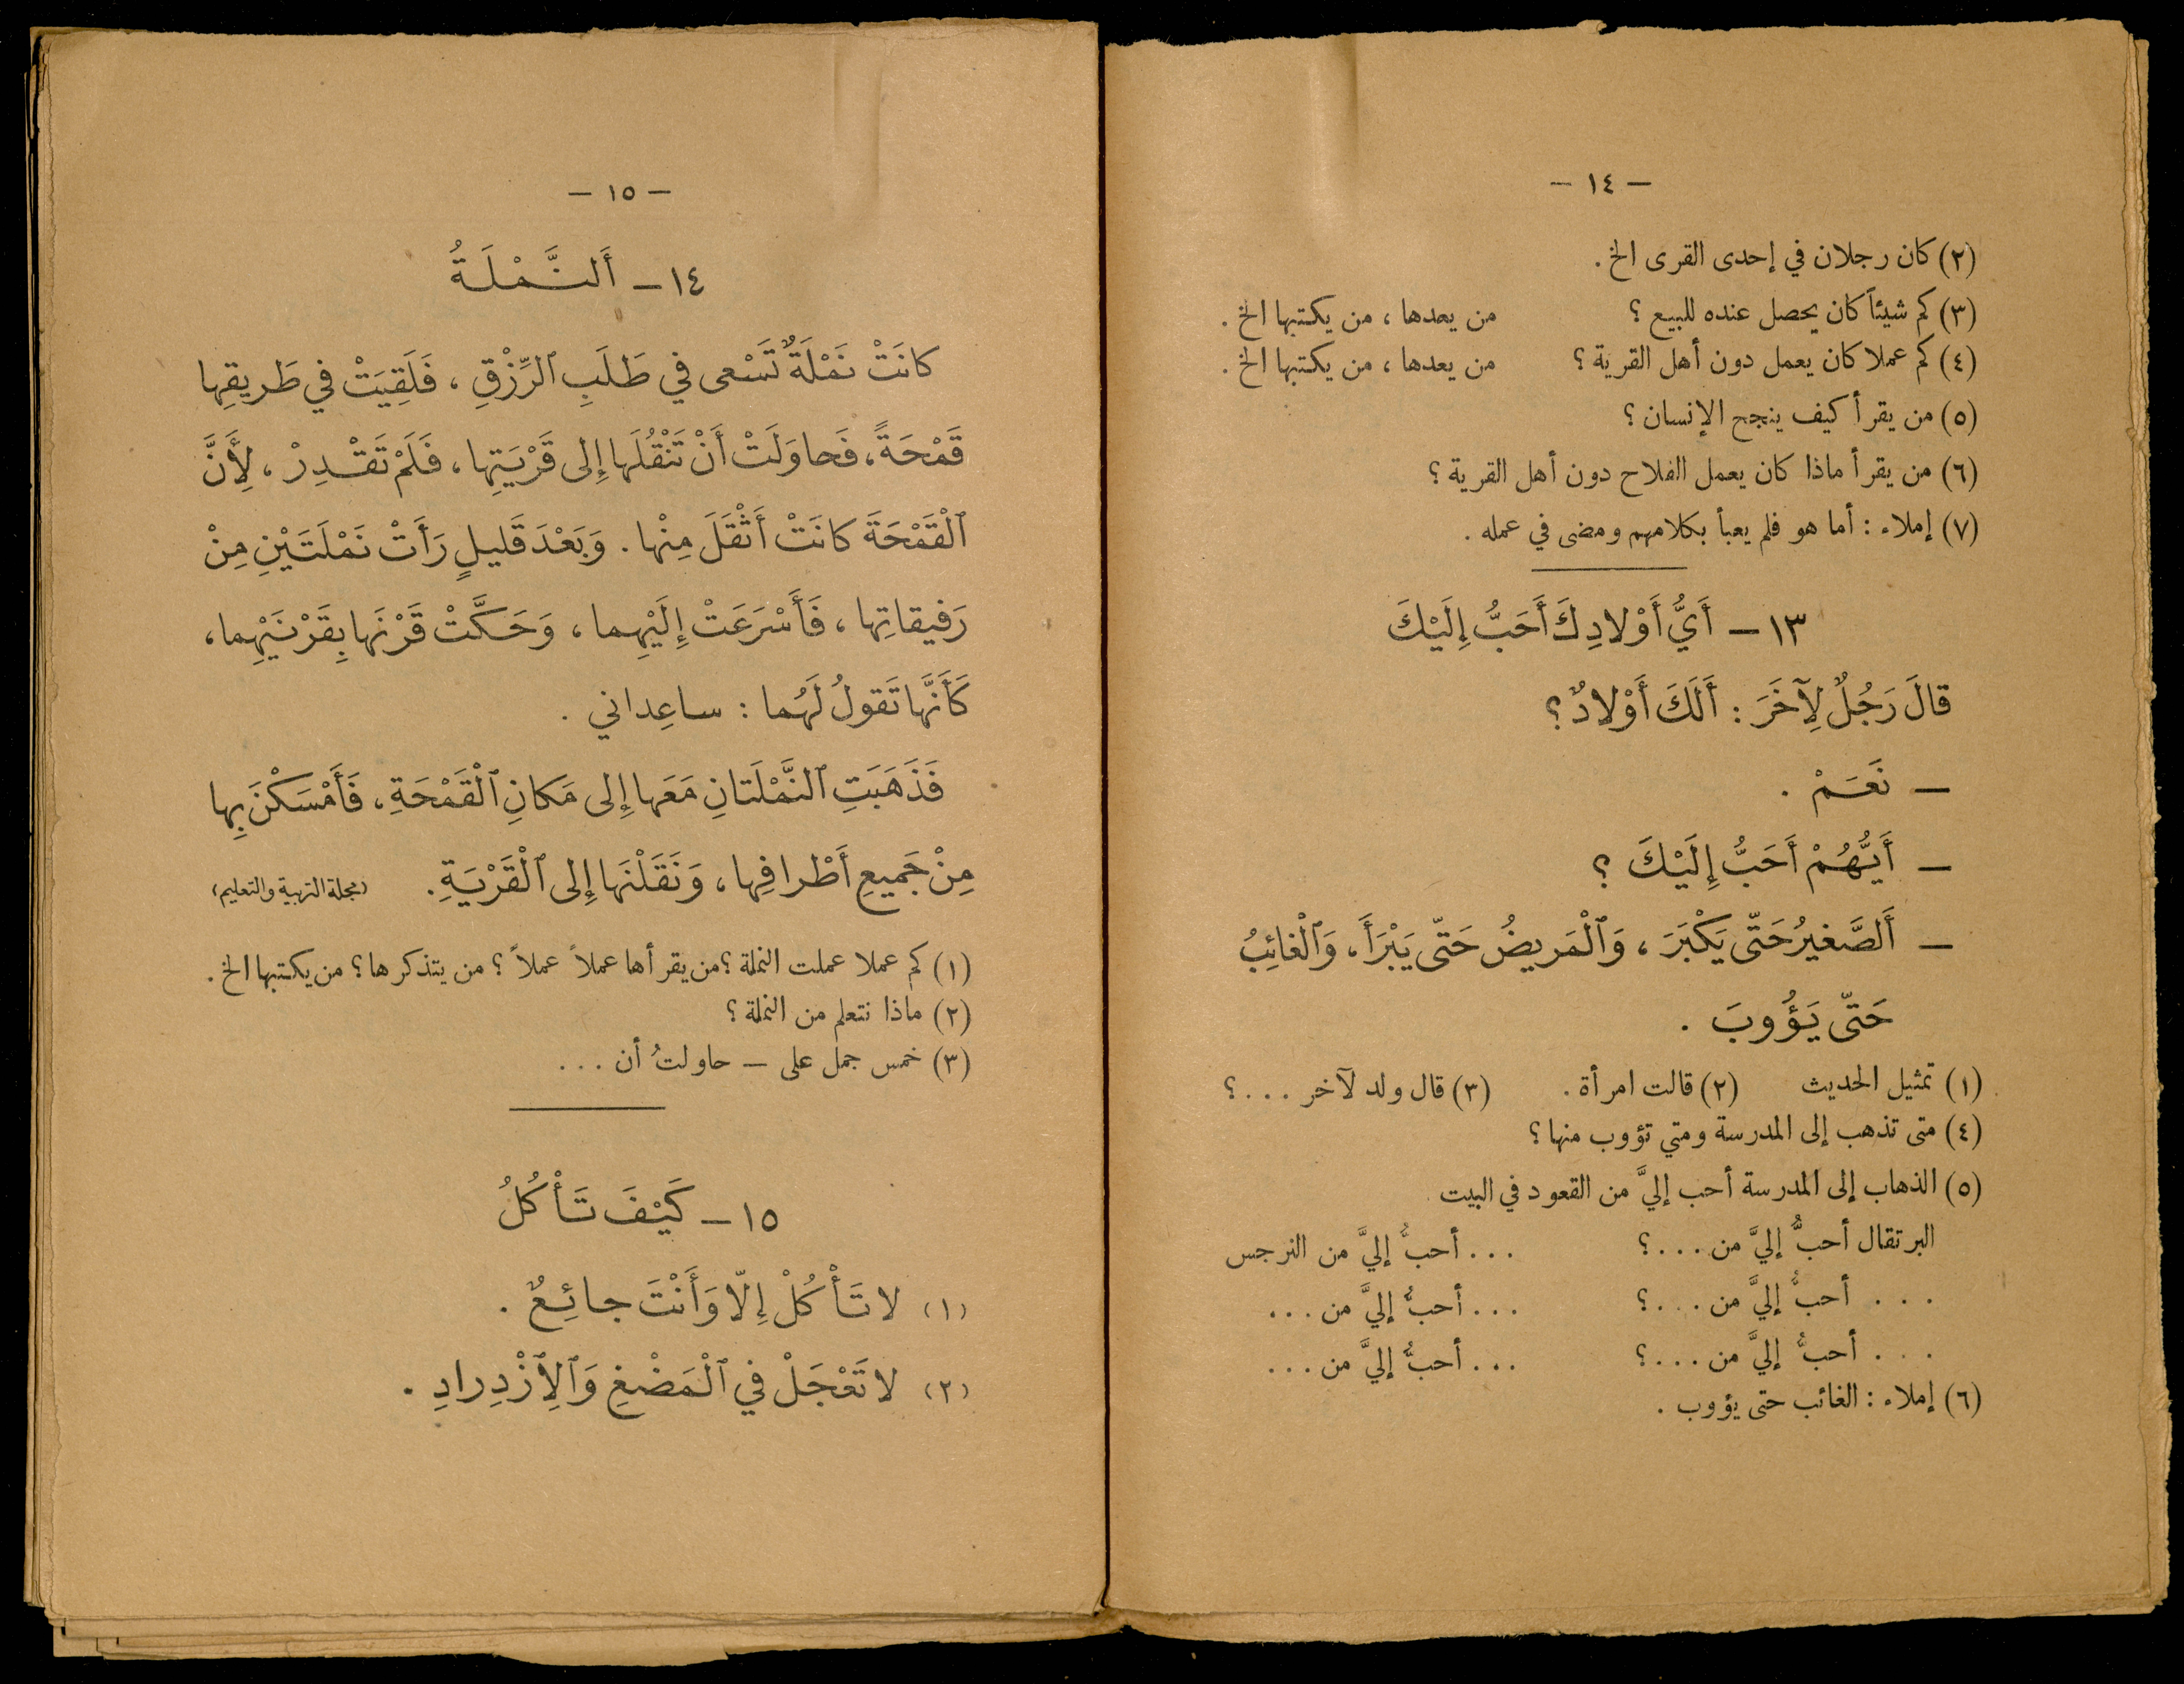 — ١٤ —
(٢) كان رجلان في إحدى القرى الخ .
(٣) كم شيئاً كان يحصل عنده للبيع ؟ من يعدها ، من يكتبها الخ .
(٤) كم عملا كان يعمل دون أهل القرية ؟ من يعدها ، من يكتبها الخ .
(٥) من يقرأ كيف ينجح الإنسان ؟
(٦) من يقرأ ماذا كان يعمل الفلاح دون أهل القرية ؟
(٧) إملاء : أما هو فلم يعبأ بكلامهم ومضى في عمله .
١٣ — أَيُّ أَوْلادِكَ أَحَبُّ إِلَيْكَ
قالَ رَجُلٌ لِآخَرَ : أَلَكَ أَوْلادٌ ؟
— نَعَمْ .
— أَيُّهُمْ أَحَبُّ إِلَيْكَ ؟
— أَلصَّغيرُ حَتّى يَكْبَرَ ، وَٱلْمَريضُ حَتّى يَبْرَأَ ، وَٱلْغائِبُ
حَتّى يَؤُوبَ .
(١) تمثيل الحديث (٢) قالت امرأة . (٣) قال ولد لآخر . . . ؟
(٤) متى تذهب إلى المدرسة ومتي تؤوب منها ؟
(٥) الذهاب إلى المدرسة أحب إليَّ من القعود في البيت
البرتقال أحبُّ إليَّ من . . . ؟ . . . أحبُّ إليَّ من النرجس
. . . أحبُّ إليَّ من . . . ؟ . . . أحبُّ إليَّ من . . .
. . . أحبُّ إليَّ من . . . ؟ . . . أحبُّ إليَّ من . . .
(٦) إملاء : الغائب حتى يؤوب .
— ١٥ —
١٤ — أَلنَّمْلَةُ
كانَتْ نَمْلَةٌ تَسْعى في طَلَبِ ٱلرِّزْقِ ، فَلَقِيَتْ في طَريقِها
قَمْحَةً ، فَحاوَلَتْ أَنْ تَنْقُلَها إِلى قَرْيَتِها ، فَلَمْ تَقْدِرْ ، لِأَنَّ
ٱلْقَمْحَةَ كانَتْ أَثْقَلَ مِنْها . وَبَعْدَ قَليلٍ رَأَتْ نَمْلَتَيْنِ مِنْ
رَفيقاتِها ، فَأَسْرَعَتْ إِلَيْهِما ، وَحَكَّتْ قَرْنَها بِقَرْنَيْهِما ،
كَأَنَّها تَقولُ لَهُما : ساعِداني .
فَذَهَبَتِ ٱلنَّمْلَتانِ مَعَها إِلى مَكانِ ٱلْقَمْحَةِ ، فَأَمْسَكْنَ بِها
مِنْ جَميعِ أَطْرافِها ، وَنَقَلْنَها إِلى ٱلْقَرْيَةِ . (مجلة التربية والتعليم)
(١) كم عملا عملت النملة ؟ من يقرأها عملاً عملاً ؟ من يتذكرها ؟ من يكتبها الخ .
(٢) ماذا نتعلم من النملة ؟
(٣) خمس جمل على — حاولتُ أن . . .
١٥ — كَيْفَ تَأْكُلُ
(١) لا تَأْكُلْ إِلّا وَأَنْتَ جائِعٌ .
(٢) لا تَعْجَلْ في ٱلْمَضْغِ وَٱلِٱزْدِرادِ .